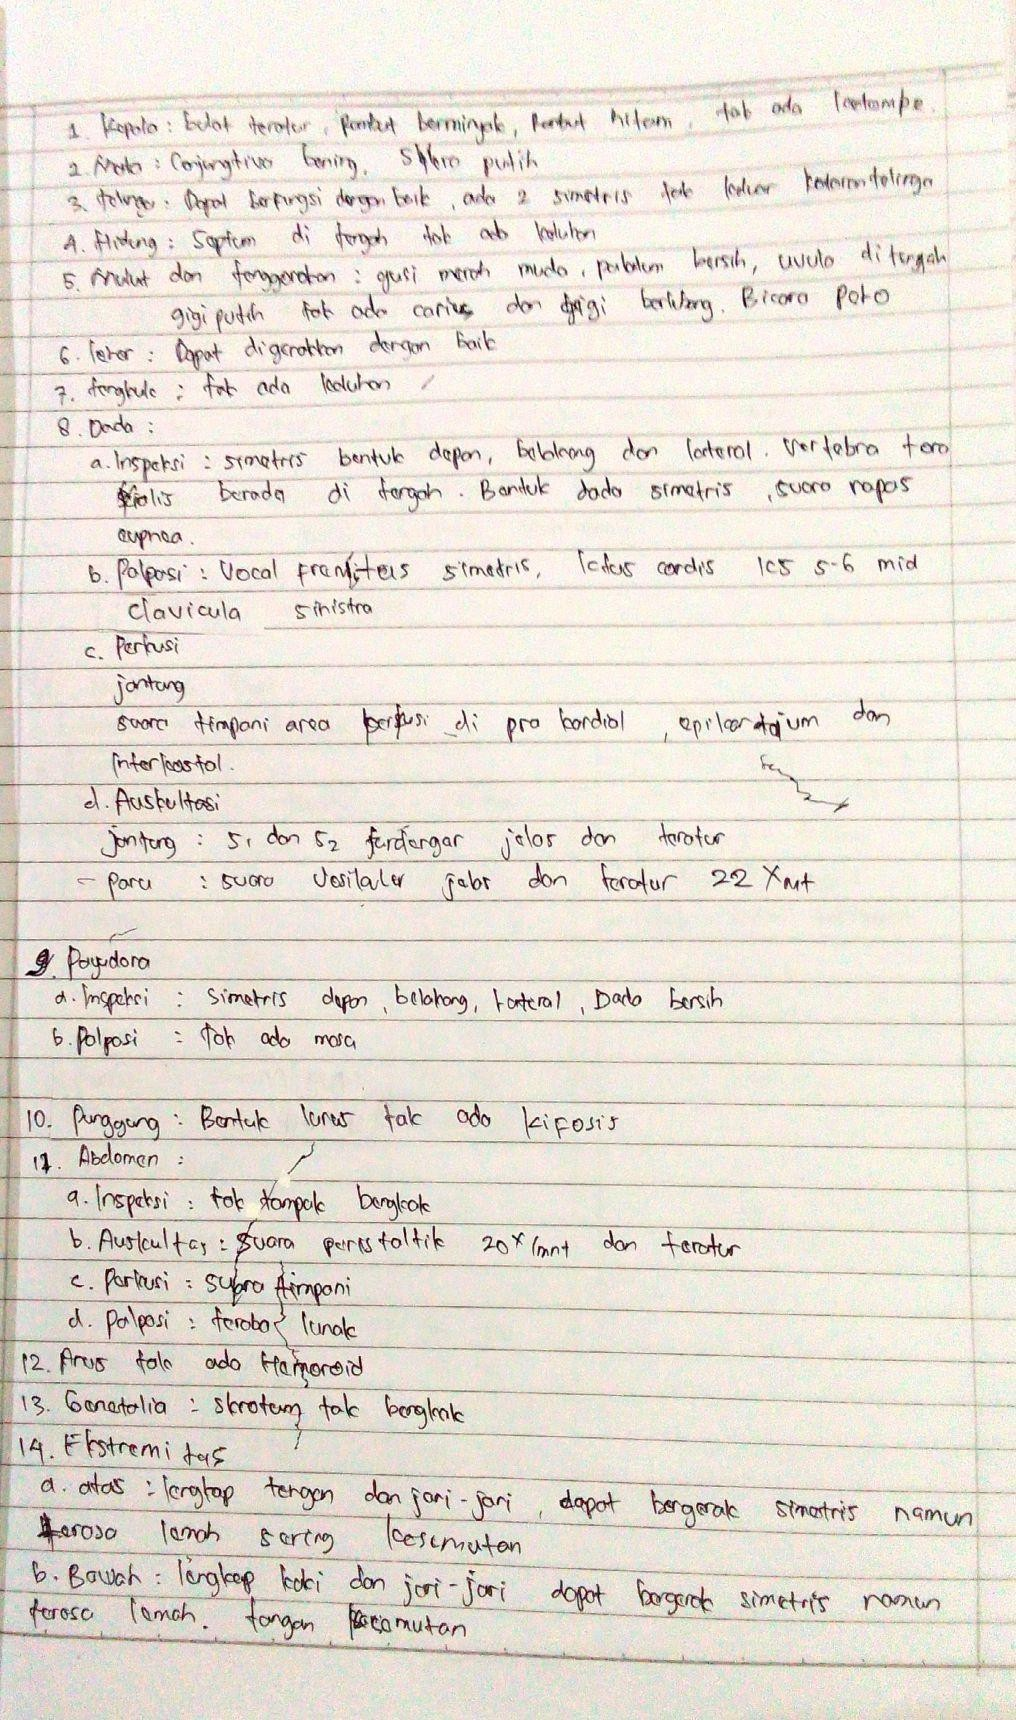 1. Kepala : bulat teratur, Rambut berminyak, Rambut hitam, tak ada ketombe.
2. Mata : Conjungtiva bening, Sklera putih
3. telinga : Dapat berfungsi dengan baik, ada 2 simetris tak keluar telinga
4. Hidung : Septum di tengah tak ada keluhan
5. Mulut dan tenggorokan : gusi merah muda, palatum bersih, uvula di tengah
gigi putih tak ada caries dan gigi berlubang. Bicara Pelo
6. leher : Dapat digerakkan dengan baik
7. tengkuk : tak ada keluhan
8. Dada :
a. Inspeksi : simetris bentuk depan, belakang dan lateral. Vertebra tora
kialis berada di tengah. Bentuk dada simetris, suara napas
eupnea.
b. Palpasi : Vocal fremitus simetris, Ictus cordis ICS 5-6 mid
clavicula sinistra
c. Perkusi
jantung
suara timpani area perkusi di pra kordial, epikardium dan
interkostal.
d. Auskultasi
jantung : S1 dan S2 terdengar jelas dan teratur
- paru : suara Vesikuler jelas dan teratur 22 x mt
9. Payudara
a. Inspeksi : Simetris depan, belakang, Lateral, Dada bersih
b. Palpasi : Tak ada masa
10. Punggung : Bentuk lurus tak ada kifosis
11. Abdomen :
a. Inspeksi : tak tampak bengkak
b. Auskultasi : Suara peristaltik 20x/mnt dan teratur
c. Perkusi : supra timpani
d. Palpasi : teraba lunak
12. Anus tak ada Hemoroid
13. Genetalia : skrotum tak bengkak
14. Ekstremitas
a. atas : lengkap tangan dan jari-jari, dapat bergerak simetris namun
terasa lemah sering kesemutan
b. Bawah : lengkap kaki dan jari-jari dapat bergerak simetris namun
terasa lemah. tangan kesemutan